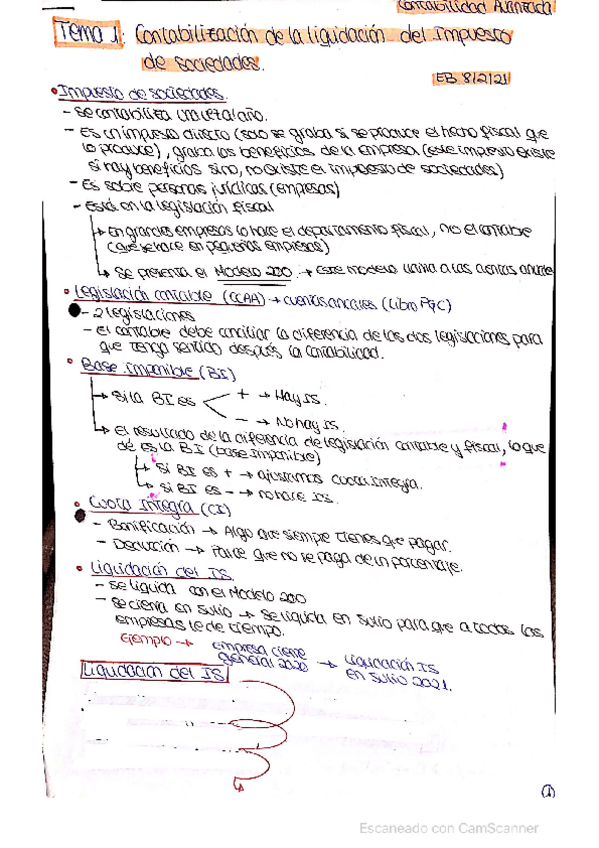 Contabilidad Avanzada
Tema 1: Contabilización de la liquidación del Impuesto
de Sociedades.
EB 8/2/21
• Impuesto de sociedades.
- Se contabiliza una vez al año.
- Es un impuesto directo (solo se graba si se produce el hecho fiscal que
lo produce), graba los beneficios de la empresa (este impuesto existe
si hay beneficios sino, no existe el impuesto de sociedades)
- Es sobre personas jurídicas (empresas)
- Está en la legislación fiscal
↳ En grandes empresas lo hace el departamento fiscal, no el contable
(que se hace en pequeñas empresas)
↳ Se presenta el Modelo 200 → Este modelo
a las cuentas
• Legislación contable (CCAA) → cuentas anuales (Libro PGC)
- 2 legislaciones
- El contable debe conciliar la diferencia de las dos legislaciones para
que tenga sentido después la contabilidad.
• Base Imponible (BI)
↳ Si la BI es + → Hay IS.
- → No hay IS.
↳ El resultado de la diferencia de legislación contable y fiscal, lo que
dé es la BI (base imponible)
↳ Si BI es + → ajustamos cuota íntegra.
↳ Si BI es - → no hace IS.
• Cuota Íntegra (CI)
- Bonificación → Algo que siempre tienes que pagar.
- Deducción → Parte que no se paga de un porcentaje.
• Liquidación del IS.
- Se liquida con el Modelo 200
- Se cierra en Julio → Se liquida en Julio para que a todas las
empresas le de tiempo.
Ejemplo → empresa cierre general 2020 → Liquidación IS en Julio 2021.
Liquidación del IS
1
Escaneado con CamScanner